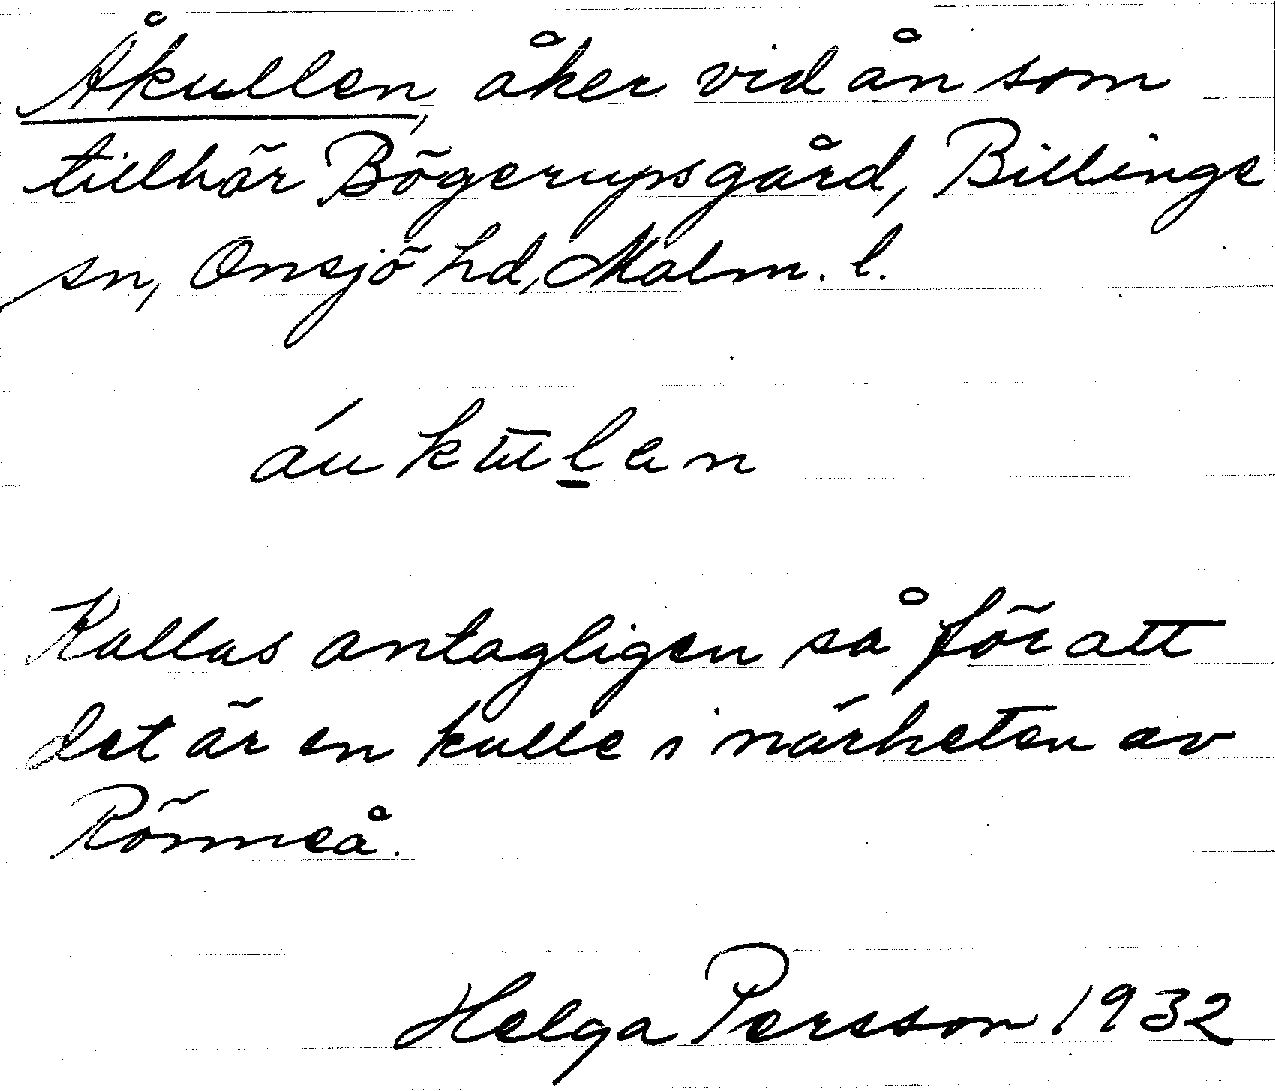 Åkullen, åker vid ån som
tillhör Bögerupsgård, Billinge
sn, Onsjö hd, Malm. l.
áu kūl̲an
Kallas antagligen så för att
det är en kulle i närheten av
Rönneå.
Helga Persson 1932